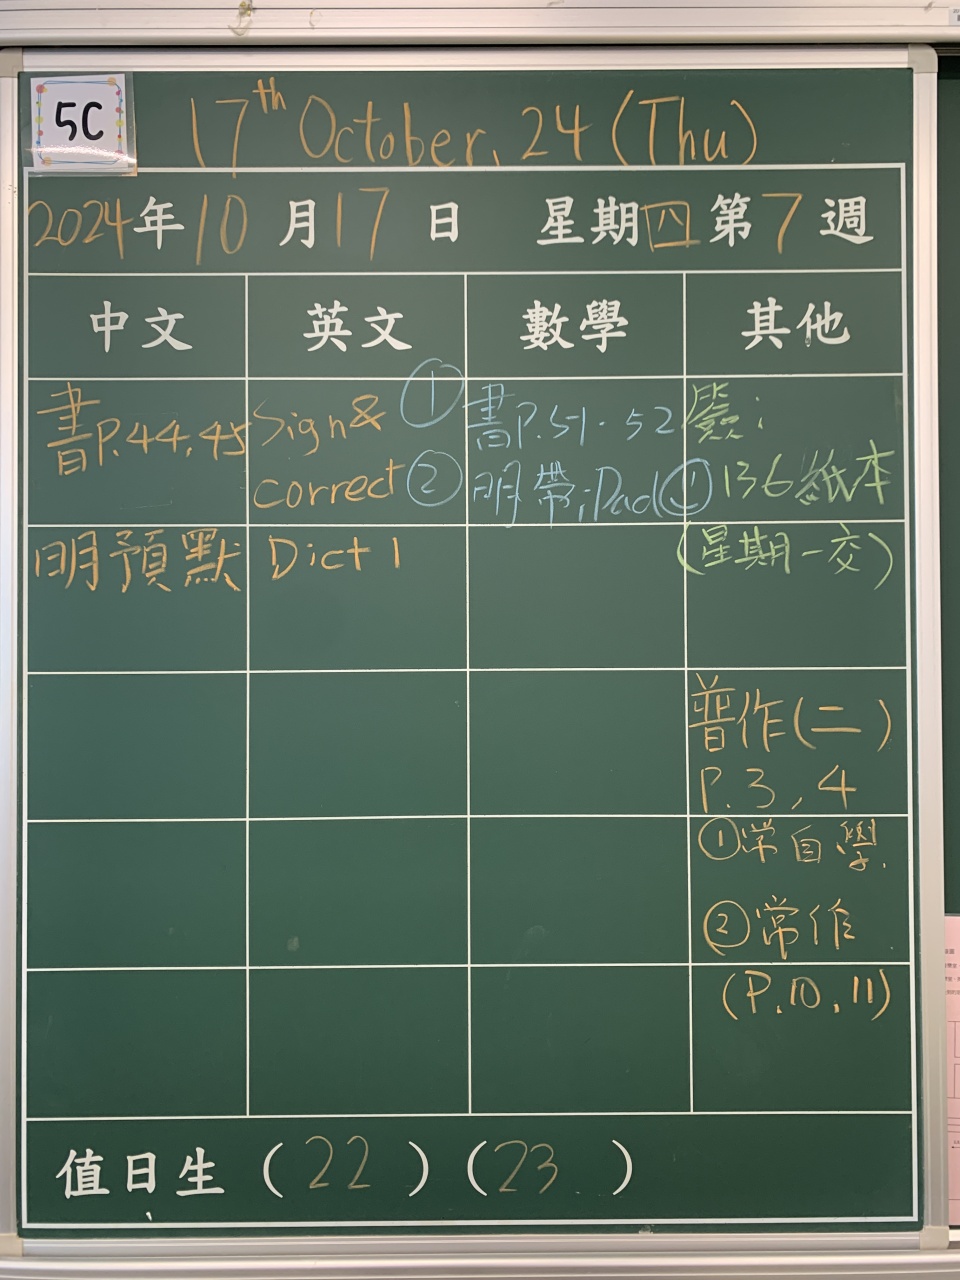 5C
17th October, 24 (Thu)
2024年10月17日 星期四 第7週
中文 英文 數學 其他
書P.44,45
明預默
Sign &
correct
Dict 1
① 書P.51.52
② 明帶iPad
簽:
① 136紙本
(星期一交)
普作(二)
P.3,4
①常自學.
②常作
(P.10,11)
值日生 (22) (23)